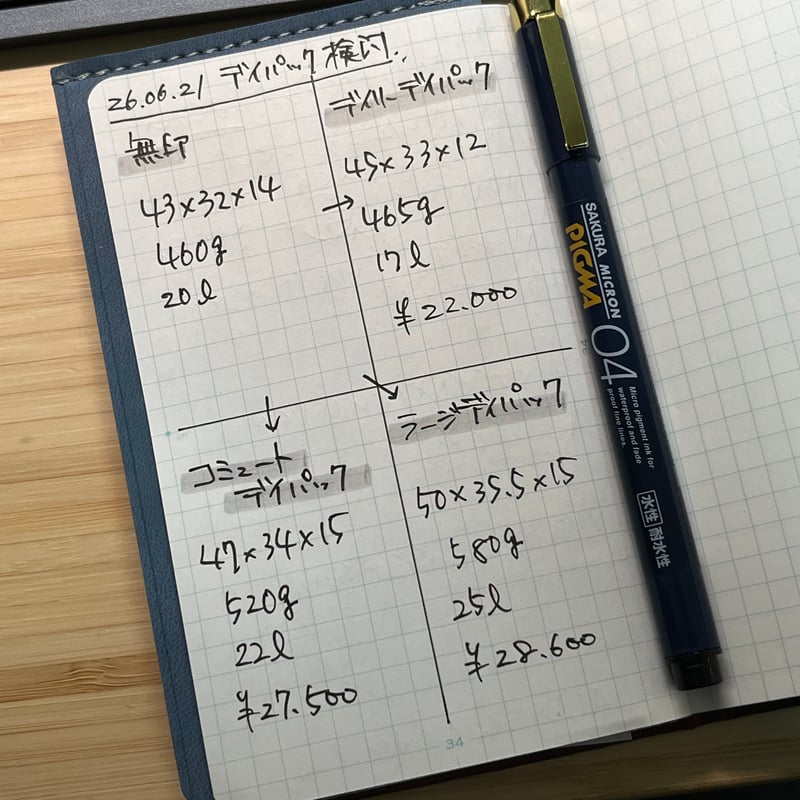 26.06.21 デイパック 検討.
無印
43×32×14
460g
20l
デイリーデイパック
45×33×12
→ 465g
17l
¥22.000
↓
コミュート
デイパック
47×34×15
520g
22l
¥27.500
ラージデイパック
50×35.5×15
580g
25l
¥28.600
34
SAKURA MICRON
PIGMA
04
Micro pigment ink for
waterproof and fade
proof fine lines.
水性 耐水性